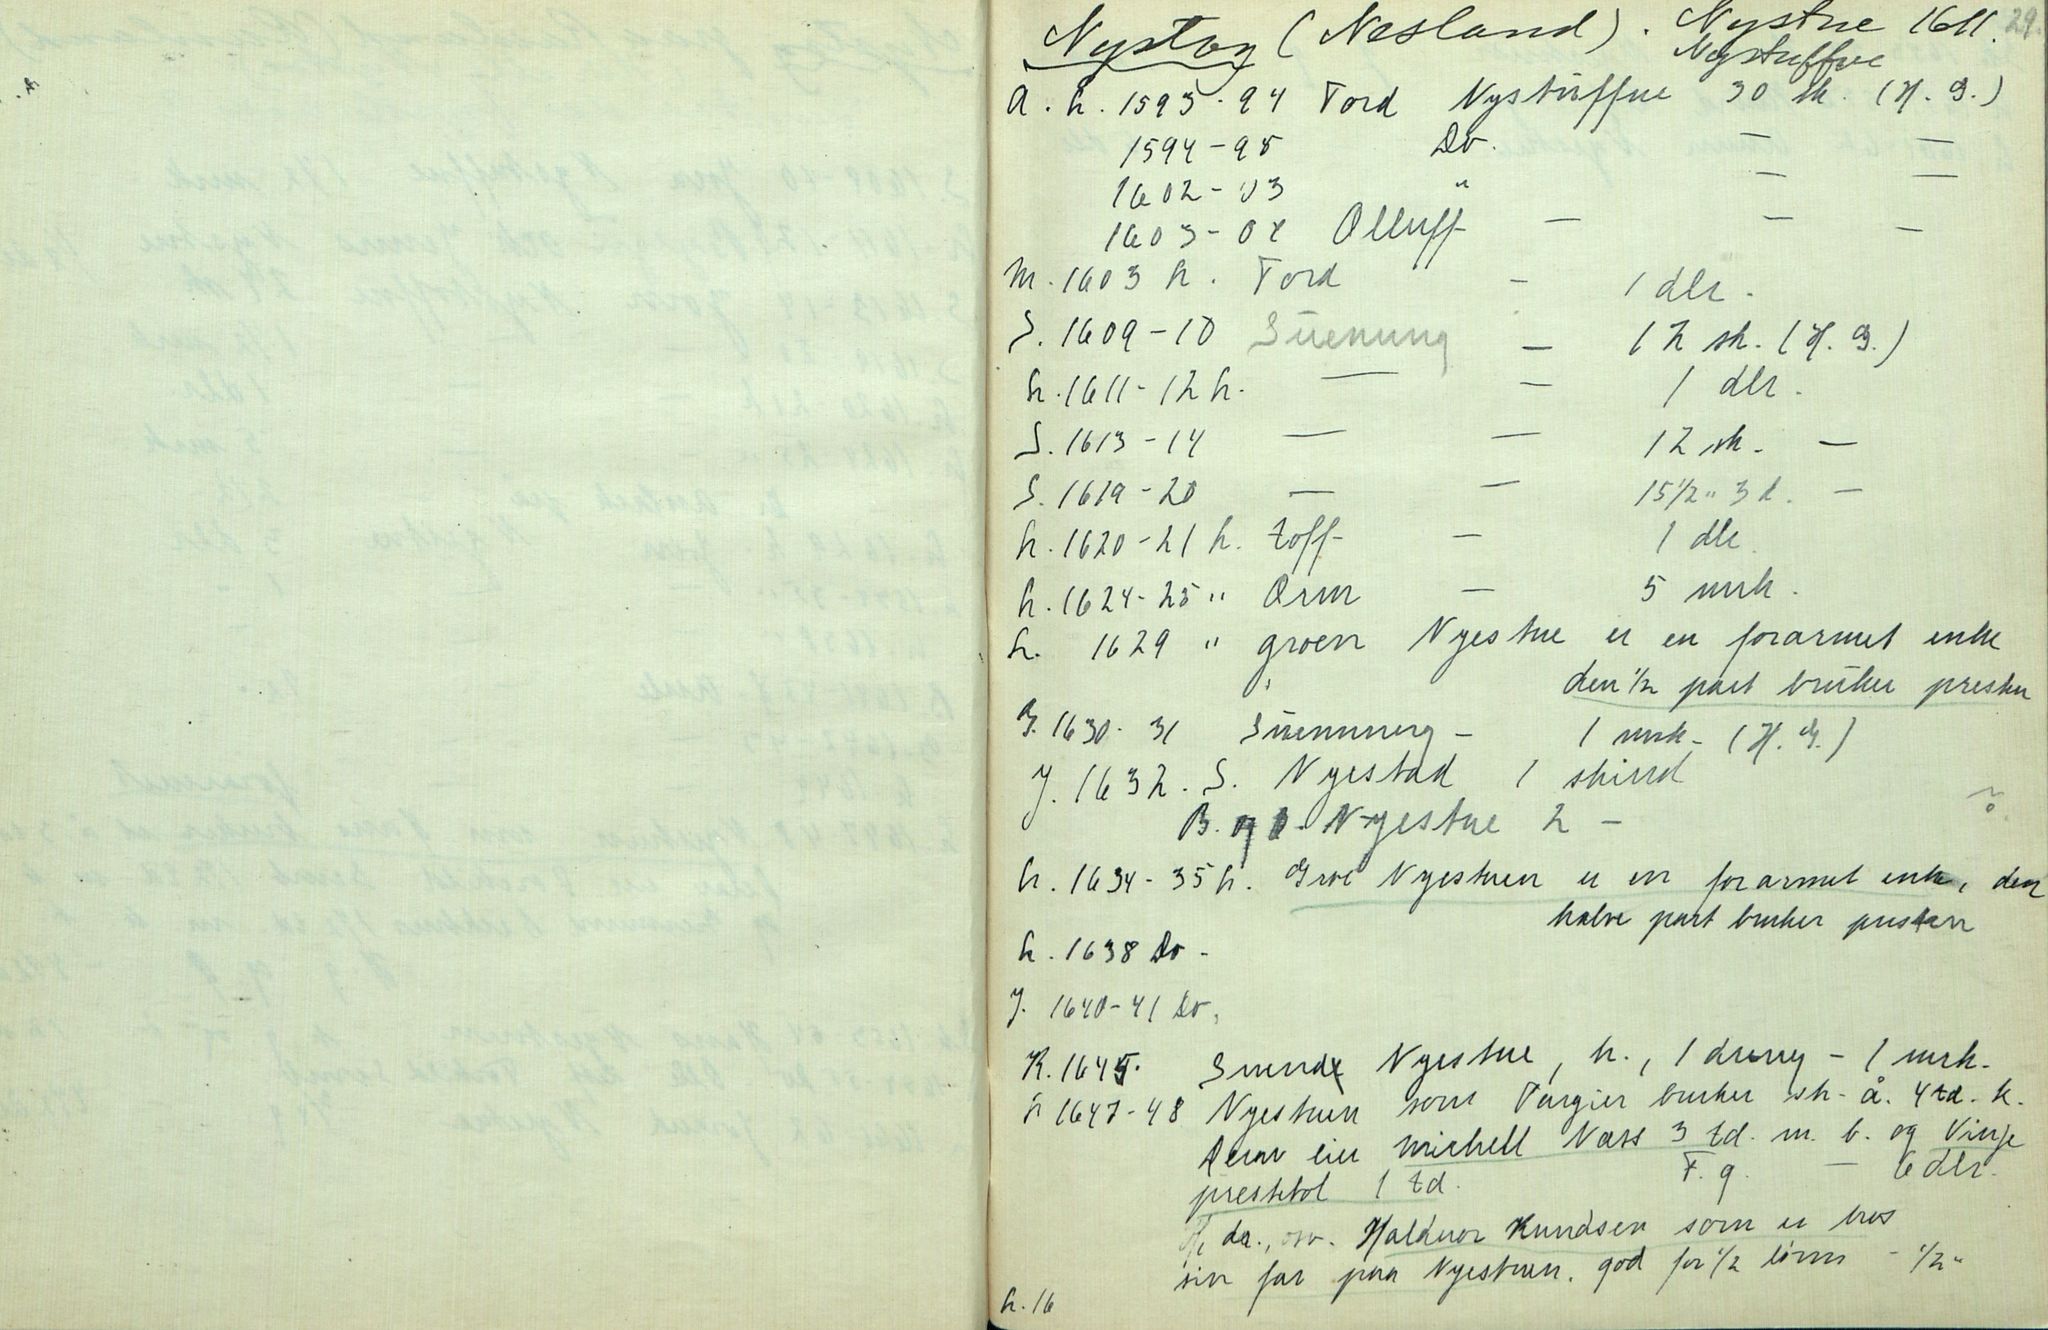 Nystog (Nesland). Nystue 1611. 29.
Nystuffue
A. h. 1593-94 Tord Nystuffue 30 sk. (H. G.)
1594-95 Do. — —
1602-03 " — —
1603-04 Olluff — — —
M. 1603 h. Tord — 1 dlr.
S. 1609-10 Suenung — 12 sk. (H. G.)
h. 1611-12 h. — — 1 dlr.
S. 1613-14 — — 12 sk. —
S. 1619-20 — — 15½ " 3 d. —
h. 1620-21 h. toff — 1 dlr
h. 1624-25 " Orm — 5 mrk.
h. 1629 " groen Nyestue er en forarmet enke
den ½ part bruker presten
G. 1630-31 Suennung — 1 mrk. (H. G.)
J. 1632. S. Nyestad 1 skind
B. og Nyestue 2 —
h. 1634-35 h. Groe Nyestuen er en forarmet enke, den
halve part bruker presten
h. 1638 Do.
J. 1640-41 Do.
K. 1645. Nyestue, h., 1 dreng — 1 mrk.
h 1647-48 Nyestuen som Targier bruker sk. å. 4 td. k.
Derav eier michell Næss 3 td. m. b. og Vinje
prestebol 1 td. F. g. — 6 dlr.
da., Halduor Knudsen som er hos
sin far paa Nyestuen. god for ½ lønn — ½ "
h. 16